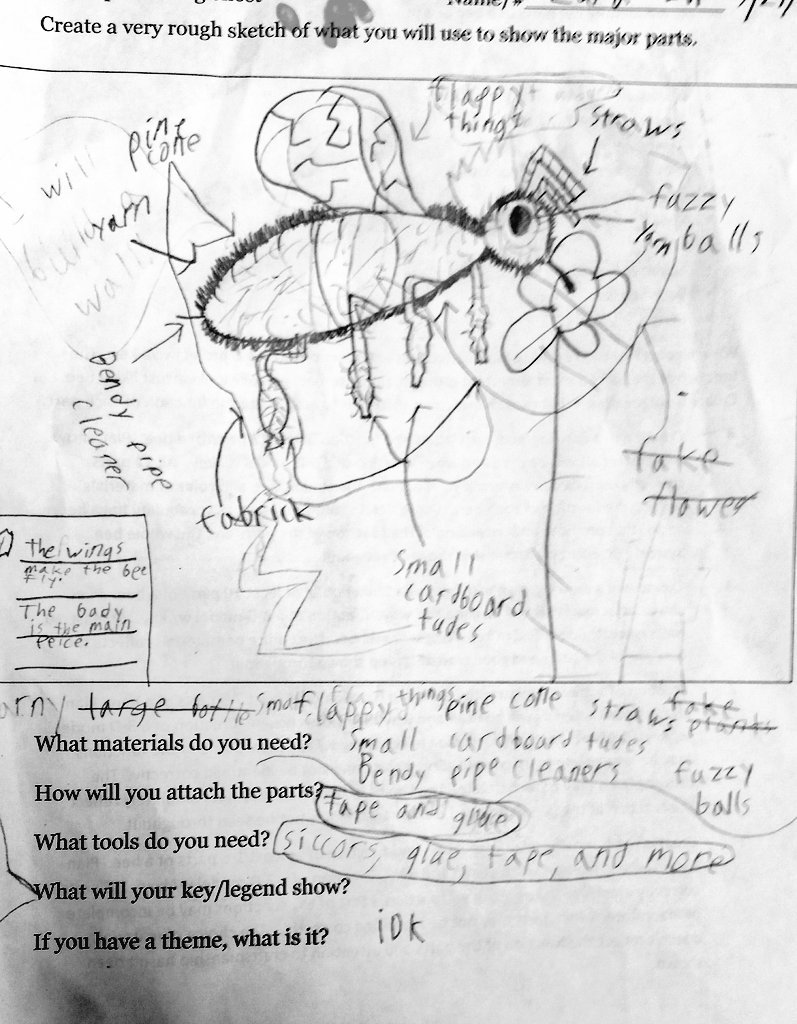 Create a very rough sketch of what you will use to show the major parts.
flappy
things
straws
pine
cone
I will
yarn
wall
fuzzy
balls
yarn
bendy pipe
cleaner
fabrick
fake
flower
small
cardboard
tudes
the wings
make the bee
fly.
The body
is the main
peice.
large bottle small flappy things pine cone straws fake plants
What materials do you need? small cardboard tudes
Bendy pipe cleaners fuzzy balls
How will you attach the parts? tape and glue
What tools do you need? siccors, glue, tape, and more
What will your key/legend show?
If you have a theme, what is it? iDK